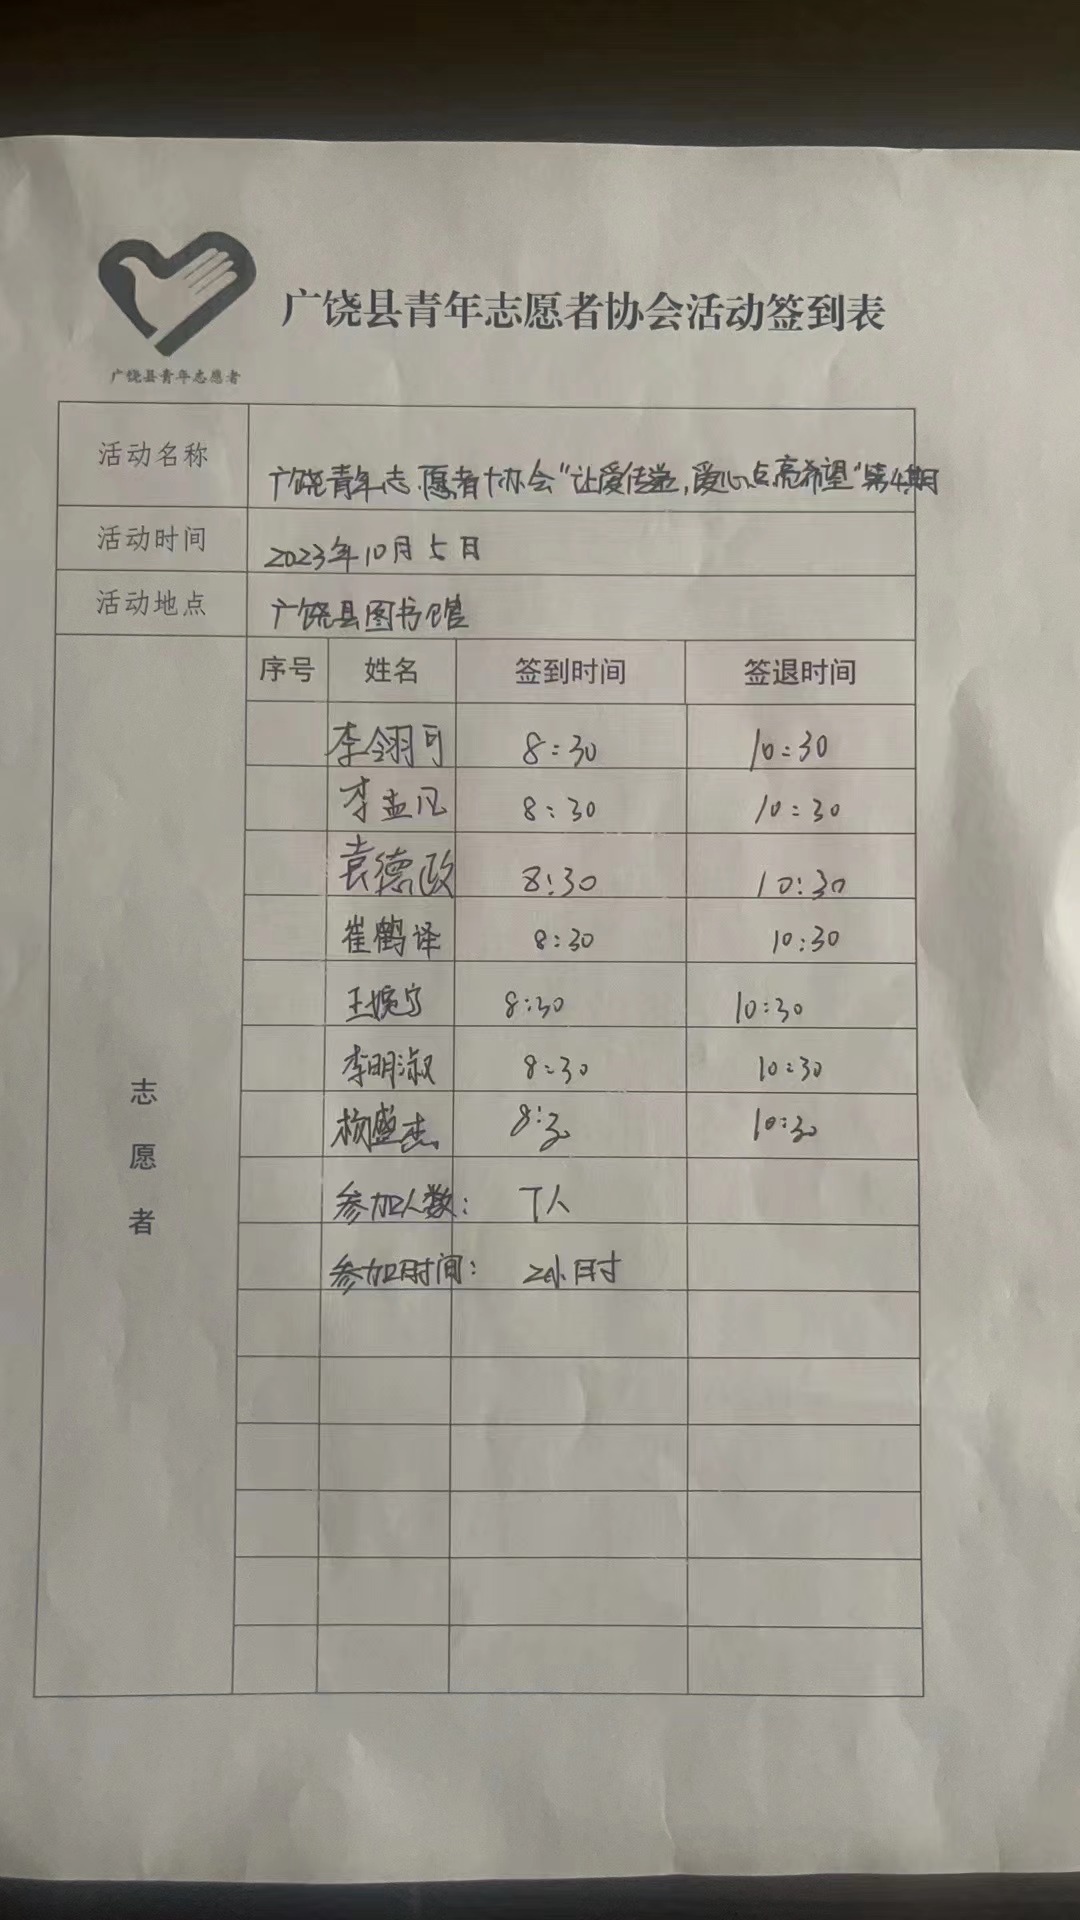 广饶县青年志愿者协会活动签到表
广饶县青年志愿者
活动名称 广饶青年志愿者协会“让爱传递，爱心点亮希望”第4期
活动时间 2023年10月5日
活动地点 广饶县图书馆
序号 姓名 签到时间 签退时间
李翎可 8:30 10:30
李孟凡 8:30 10:30
袁德政 8:30 10:30
崔鹤译 8:30 10:30
王婉宁 8:30 10:30
李明淑 8:30 10:30
杨盛杰 8:30 10:30
参加人数： 7人
参加时间： 2小时
志
愿
者